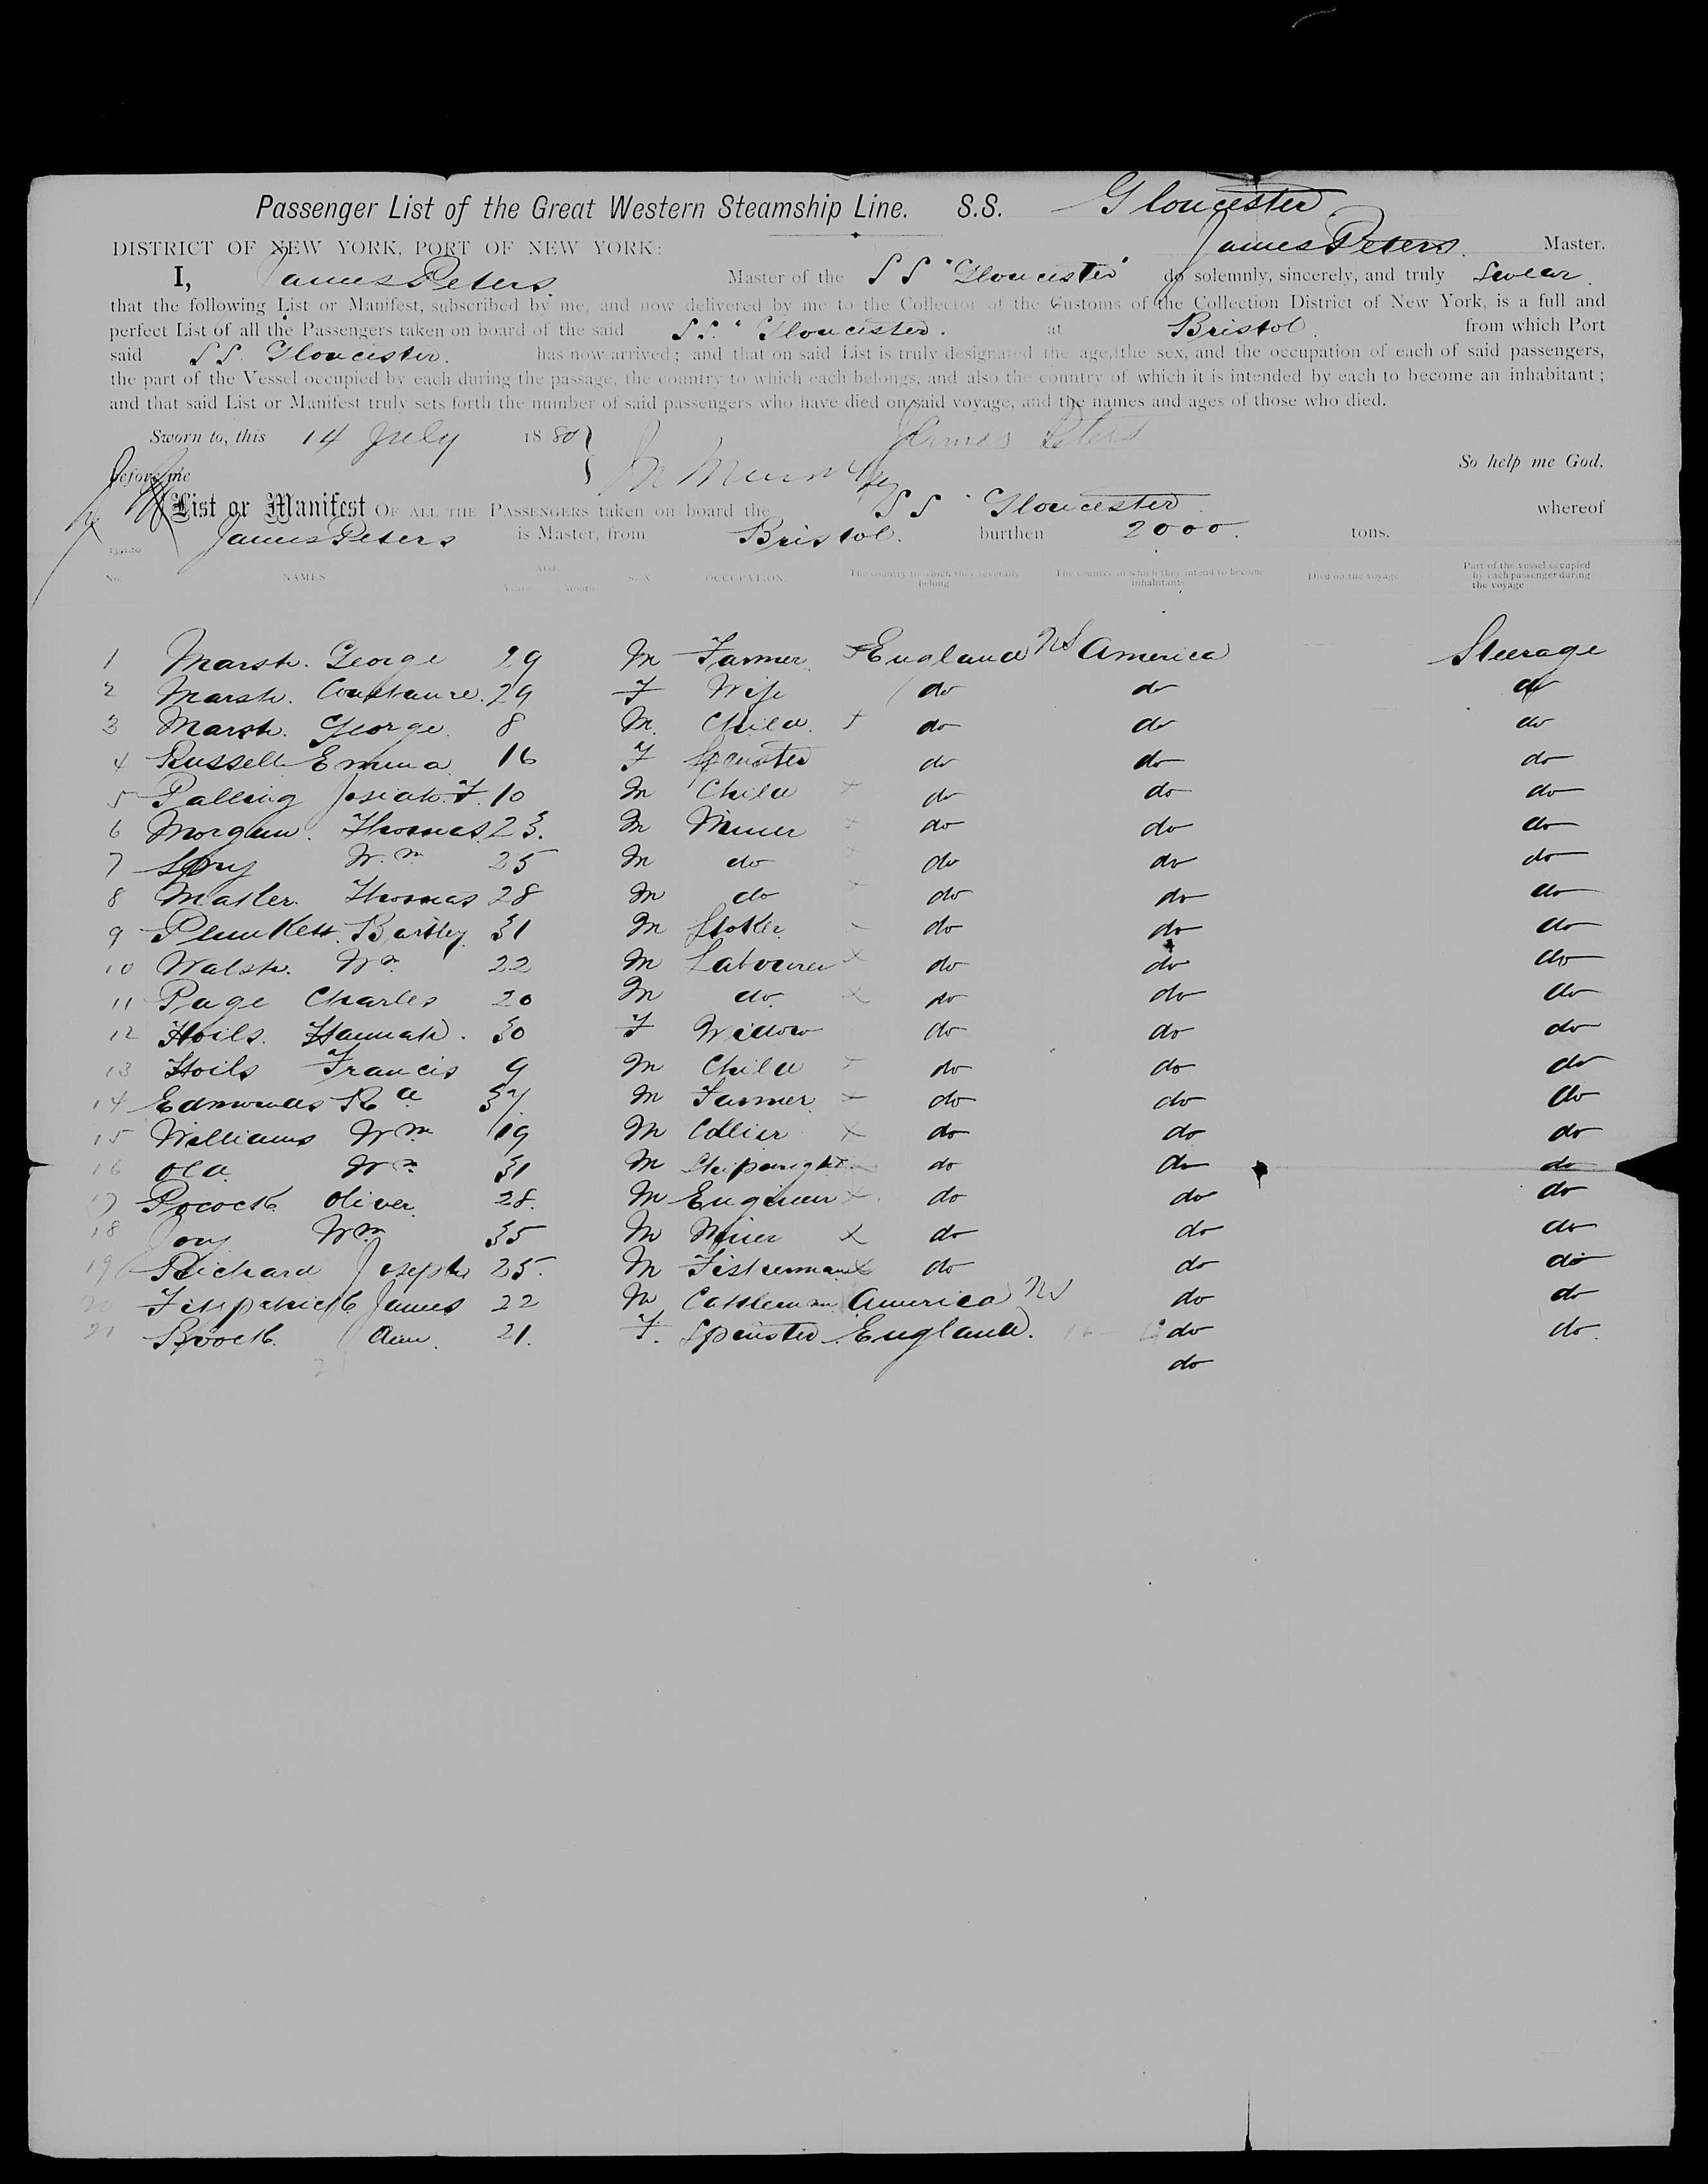 Passenger List of the Great Western Steamship Line. S.S. Gloucester
DISTRICT OF NEW YORK, PORT OF NEW YORK: James Peters. Master.
I, James Peters. Master of the SS "Gloucester" do solemnly, sincerely, and truly Swear.
that the following List or Manifest, subscribed by me, and now delivered by me to the Collector of the Customs of the Collection District of New York, is a full and
perfect List of all the Passengers taken on board of the said SS. "Gloucester. at Bristol from which Port
said SS. Gloucester. has now arrived; and that on said List is truly designated the age, the sex, and the occupation of each of said passengers,
the part of the Vessel occupied by each during the passage, the country to which each belongs, and also the country of which it is intended by each to become an inhabitant;
and that said List or Manifest truly sets forth the number of said passengers who have died on said voyage, and the names and ages of those who died.
Sworn to, this 14 July 1880 James Peters
before me So help me God.
List or Manifest OF ALL THE PASSENGERS taken on board the SS "Gloucester whereof
James Peters is Master, from Bristol. burthen 2000. tons.
No. NAMES AGE Years Months SEX OCCUPATION. The country to which they severally belong The country in which they intend to become inhabitants Died on the voyage Part of the vessel occupied by each passenger during the voyage
1 Marsh. George 29 M Farmer England America Steerage
2 Marsh. Constance. 29 F Wife do do do
3 Marsh. George. 8 M. Child. + do do do
4 Russell Emma 16 F Spinster do do do
5 Palling Josiah. F. 10 M Child + do do do
6 Morgan. Thomas. 23. M Miner + do do do
7 Spry Wm 25 M do + do do do
8 Thomas 28 M do do do do
9 Plunkett. Bartley 31 M Stoker do do do
10 Walsh. Wm 22 M Labourer x do do do
11 Page Charles 20 M do. x do do do
12 Hoils. Hannah. 30 F Widow do do do
13 Hoils Francis 9 M Child + do do do
14 Edmonds Rd 37. M Farmer do do do
15 Williams Wm 19 M Collier x do do do
16 Old Wm 31 M Shipwright do do do
17 Pocock Oliver 28. M Engineer x do do do
18 Joy Wm 35 M Miner x do do do
19 Richard Joseph 25. M Fisherman x do do do
20 Fitzpatrick James 22 M Cattleman America do do
21 Ann. 21. F. Spinster England. do do.
do